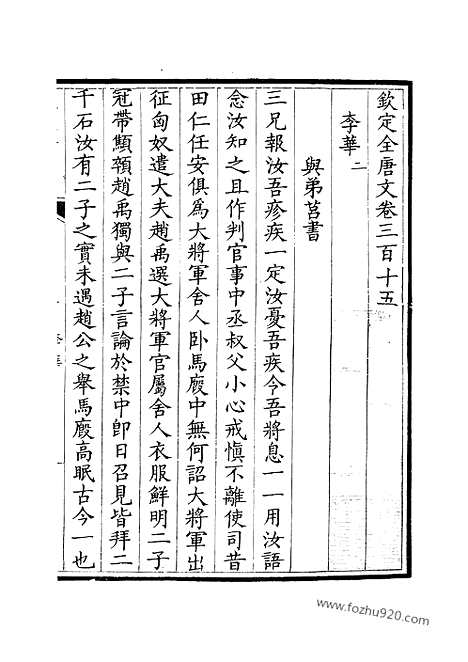 欽定全唐文卷三百十五
李華二
與弟莒書
三兄報汝吾疹疾一定汝憂吾疾今吾將息一一用汝語
念汝知之且作判官事中丞叔父小心戒慎不離使司昔
田仁任安俱為大將軍舍人臥馬廄中無何詔大將軍出
征匈奴遣大夫趙禹選大將軍官屬舍人衣服鮮明二子
冠帶顦顇趙禹獨與二子言論於禁中卽日召見皆拜二
千石汝有二子之實未遇趙公之舉馬廄高眠古今一也
www.fozhu920.com